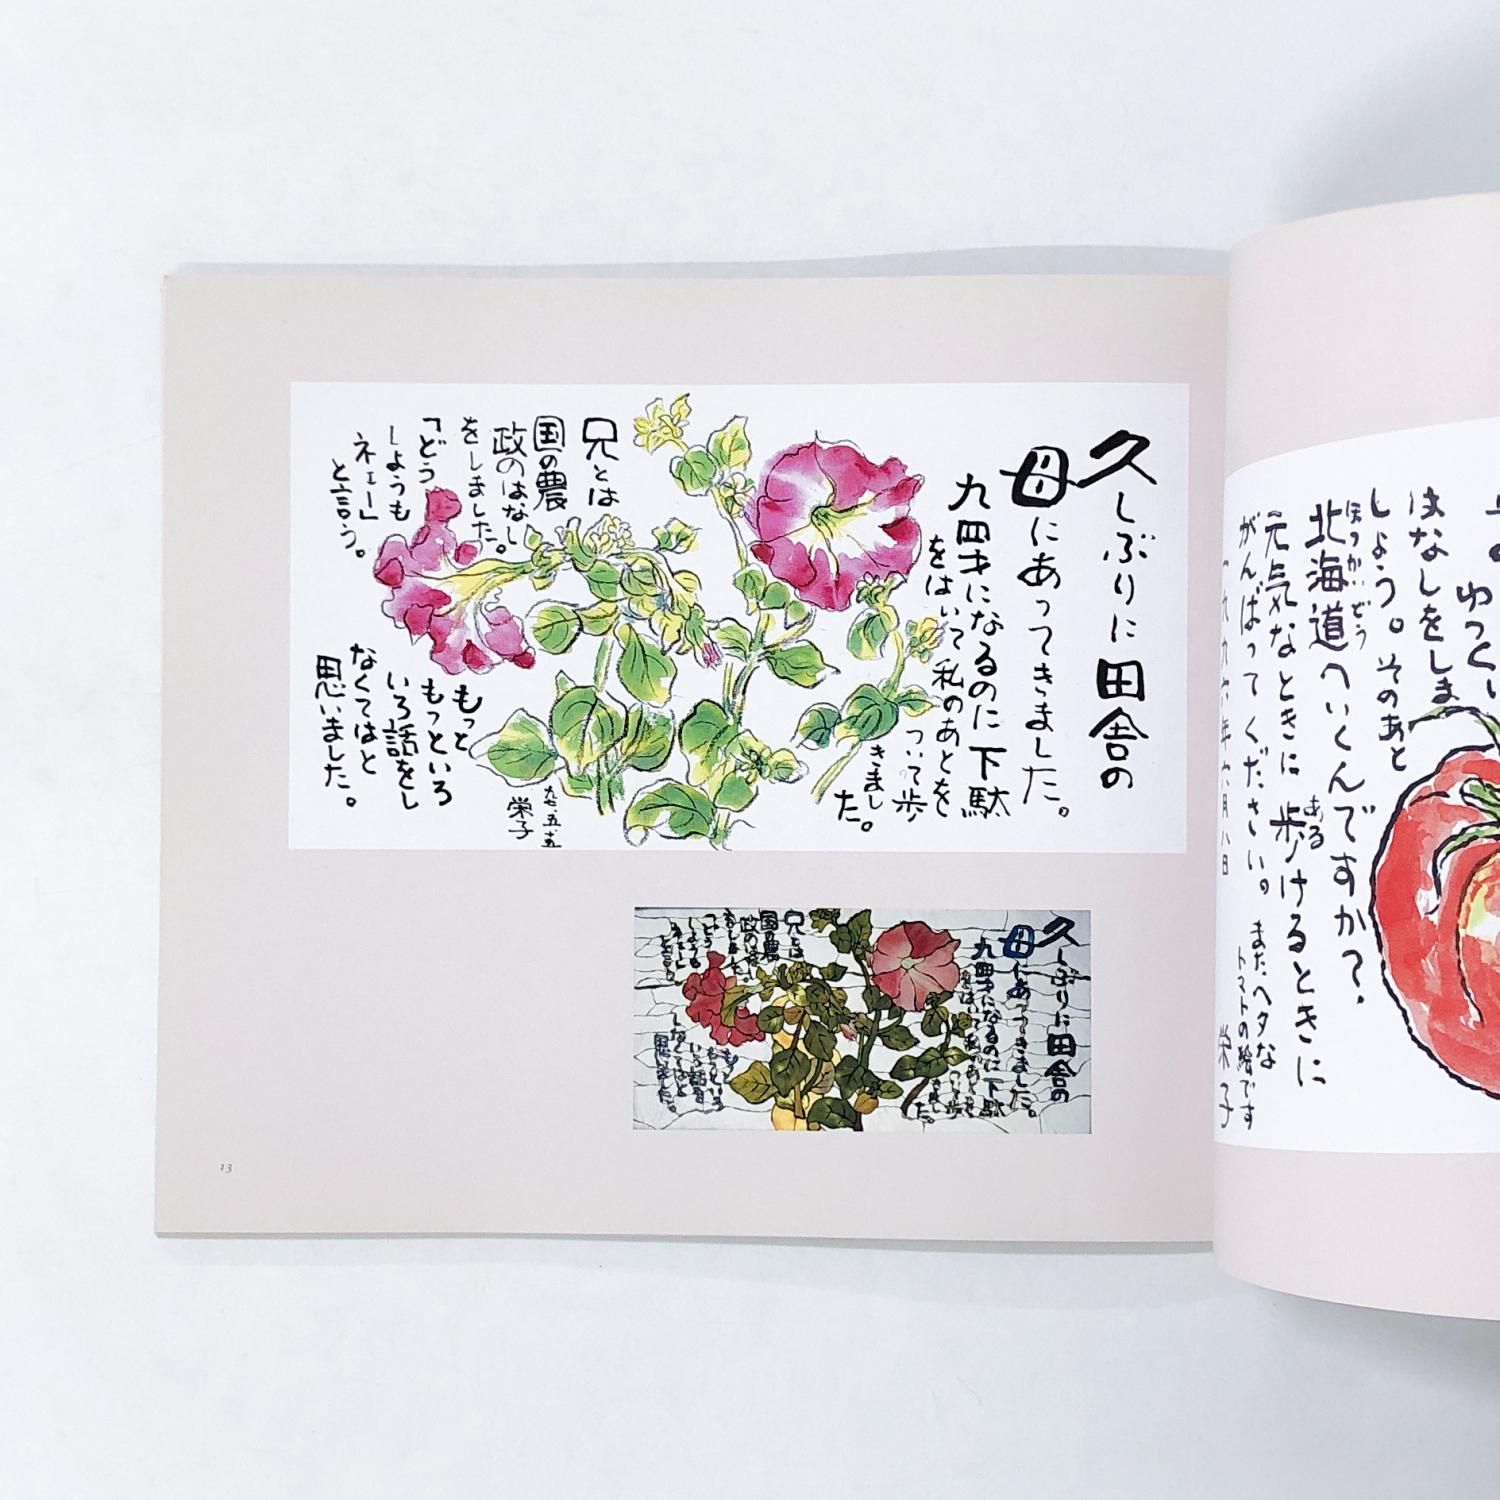 久しぶりに田舎の
母にあってきました。
九四才になるのに下駄
をはいて私のあとを
ついて歩
きまし
た。
兄とは
国の農
政のはなし
をしました。
「どう
しようも
ネェー」
と言う。
もっと
もっといろ
いろ話をし
なくてはと
思いました。
九七、五・十五
栄子
久しぶりに田舎の
母にあってきました。
九四才になるのに下駄
をはいて私のあとを
ついて歩
きまし
た。
兄とは
国の農
政のはなし
をしました。
「どう
しようも
ネェー」
と言う。
もっと
もっといろ
いろ話を
しなくてはと
思いました。
13
ゆっくり
はなしをしま
しょう。そのあと
ほっかいどう
北海道へいくんですか?
ある
元気なときに歩けるときに
がんばってください。またヘタな
トマトの絵です
一九九六年六月八日
栄子